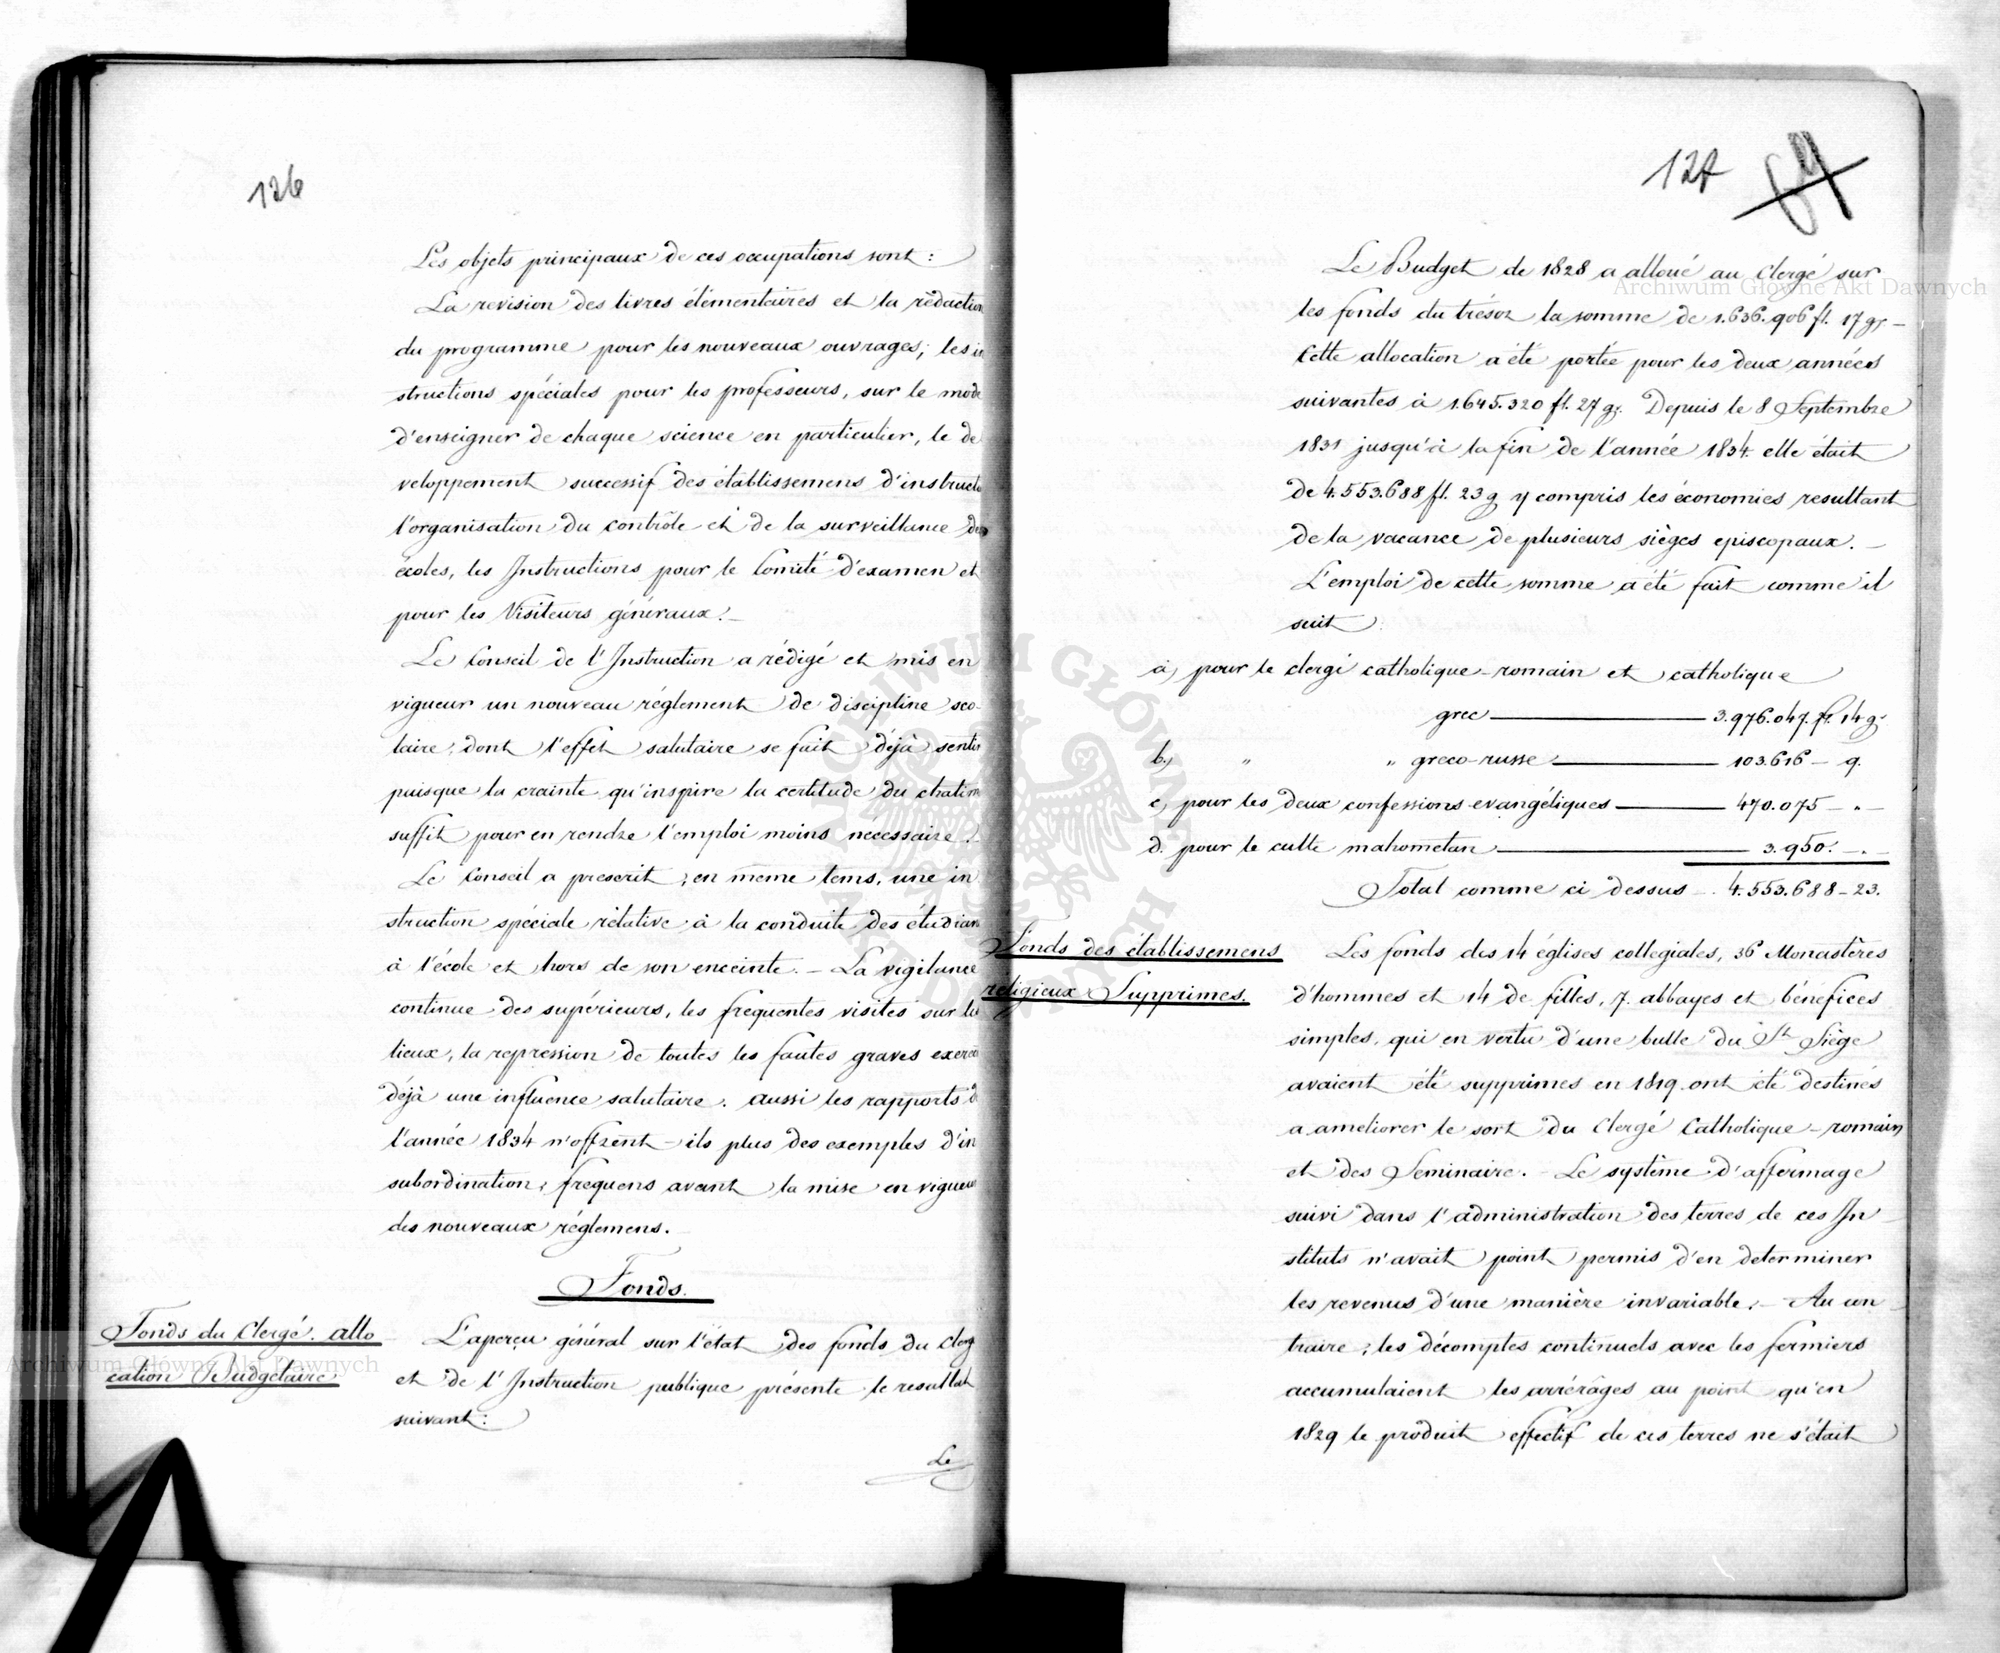 126
Les objets principaux de ces occupations sont :
La revision des livres élémentaires et la rédaction
du programme pour les nouveaux ouvrages; les in
structions spéciales pour les professeurs, sur le mode
d'enseigner de chaque science en particulier, le de
veloppement successif des établissemens d'instructi
l'organisation du contrôle et de la surveillance des
écoles, les Instructions pour le Comité d'examen et
pour les Visiteurs généraux. –
Le Conseil de l'Instruction a rédigé et mis en
vigueur un nouveau réglement de discipline sco-
laire, dont l'effet salutaire se fait déjà sentir
puisque la crainte qu'inspire la certitude du chatim
suffit pour en rendre l'emploi moins nécessaire. –
Le Conseil a prescrit, en même tems, une in
struction spéciale rélative à la conduite des étudian
à l'école et hors de son enceinte. – La vigilance
continue des supérieurs, les frequentes visites sur les
lieux, la repression de toutes les fautes graves exerce
déjà une influence salutaire. aussi les rapports d
l'année 1834 n'offrent – ils plus des exemples d'in
subordination, frequens avant la mise en vigueur
des nouveaux réglemens.
Fonds.
Fonds du Clergé. allo
cation Budgetaire
L'aperçu général sur l'état des fonds du clerg
et de l'Instruction publique présente le resultat
suivant :
Le
127 64
Le Budget de 1828 a alloué au Clergé sur
les fonds du trésor la somme de 1.636.906 fl. 17 gr –
Cette allocation a été portée pour les deux années
suivantes à 1.645.320 fl. 27 gr. Depuis le 8 Septembre
1831 jusqu'à la fin de l'année 1834 elle était
de 4.553.688 fl. 23 g y compris les économies resultant
de la vacance de plusieurs sièges episcopaux. –
L'emploi de cette somme a été fait comme il
suit :
a, pour le clergé catholique-romain et catholique
grec — 3.976.047. fl. 14 g.
b, " " greco-russe — 103.616 – 9.
c, pour les deux confessions evangéliques — 470.075 – " –
d. pour le culte mahometan — 3.950. – . –
Total comme ci dessus – 4.553.688 – 23.
Fonds des établissemens
réligieux Supprimes.
Les fonds des 14 églises collegiales, 36 Monastères
d'hommes et 14 de filles, 7. abbayes et bénéfices
simples, qui en vertu d'une bulle du St Siège
avaient été supprimes en 1819. ont été destinés
a ameliorer le sort du Clergé Catholique – romain
et des Seminaire. – Le système d'affermage
suivi dans l'administration des terres de ces In
stituts n'avait point permis d'en determiner
les revenus d'une manière invariable. – Au con
traire, les décomptes continuels avec les fermiers
accumulaient les arrérâges au point qu'en
1829 le produit effectif de ces terres ne s'était
Archiwum Główne Akt Dawnych
Archiwum Główne Akt Dawnych
ARCHIWUM GŁÓWNE AKT DAWNYCH